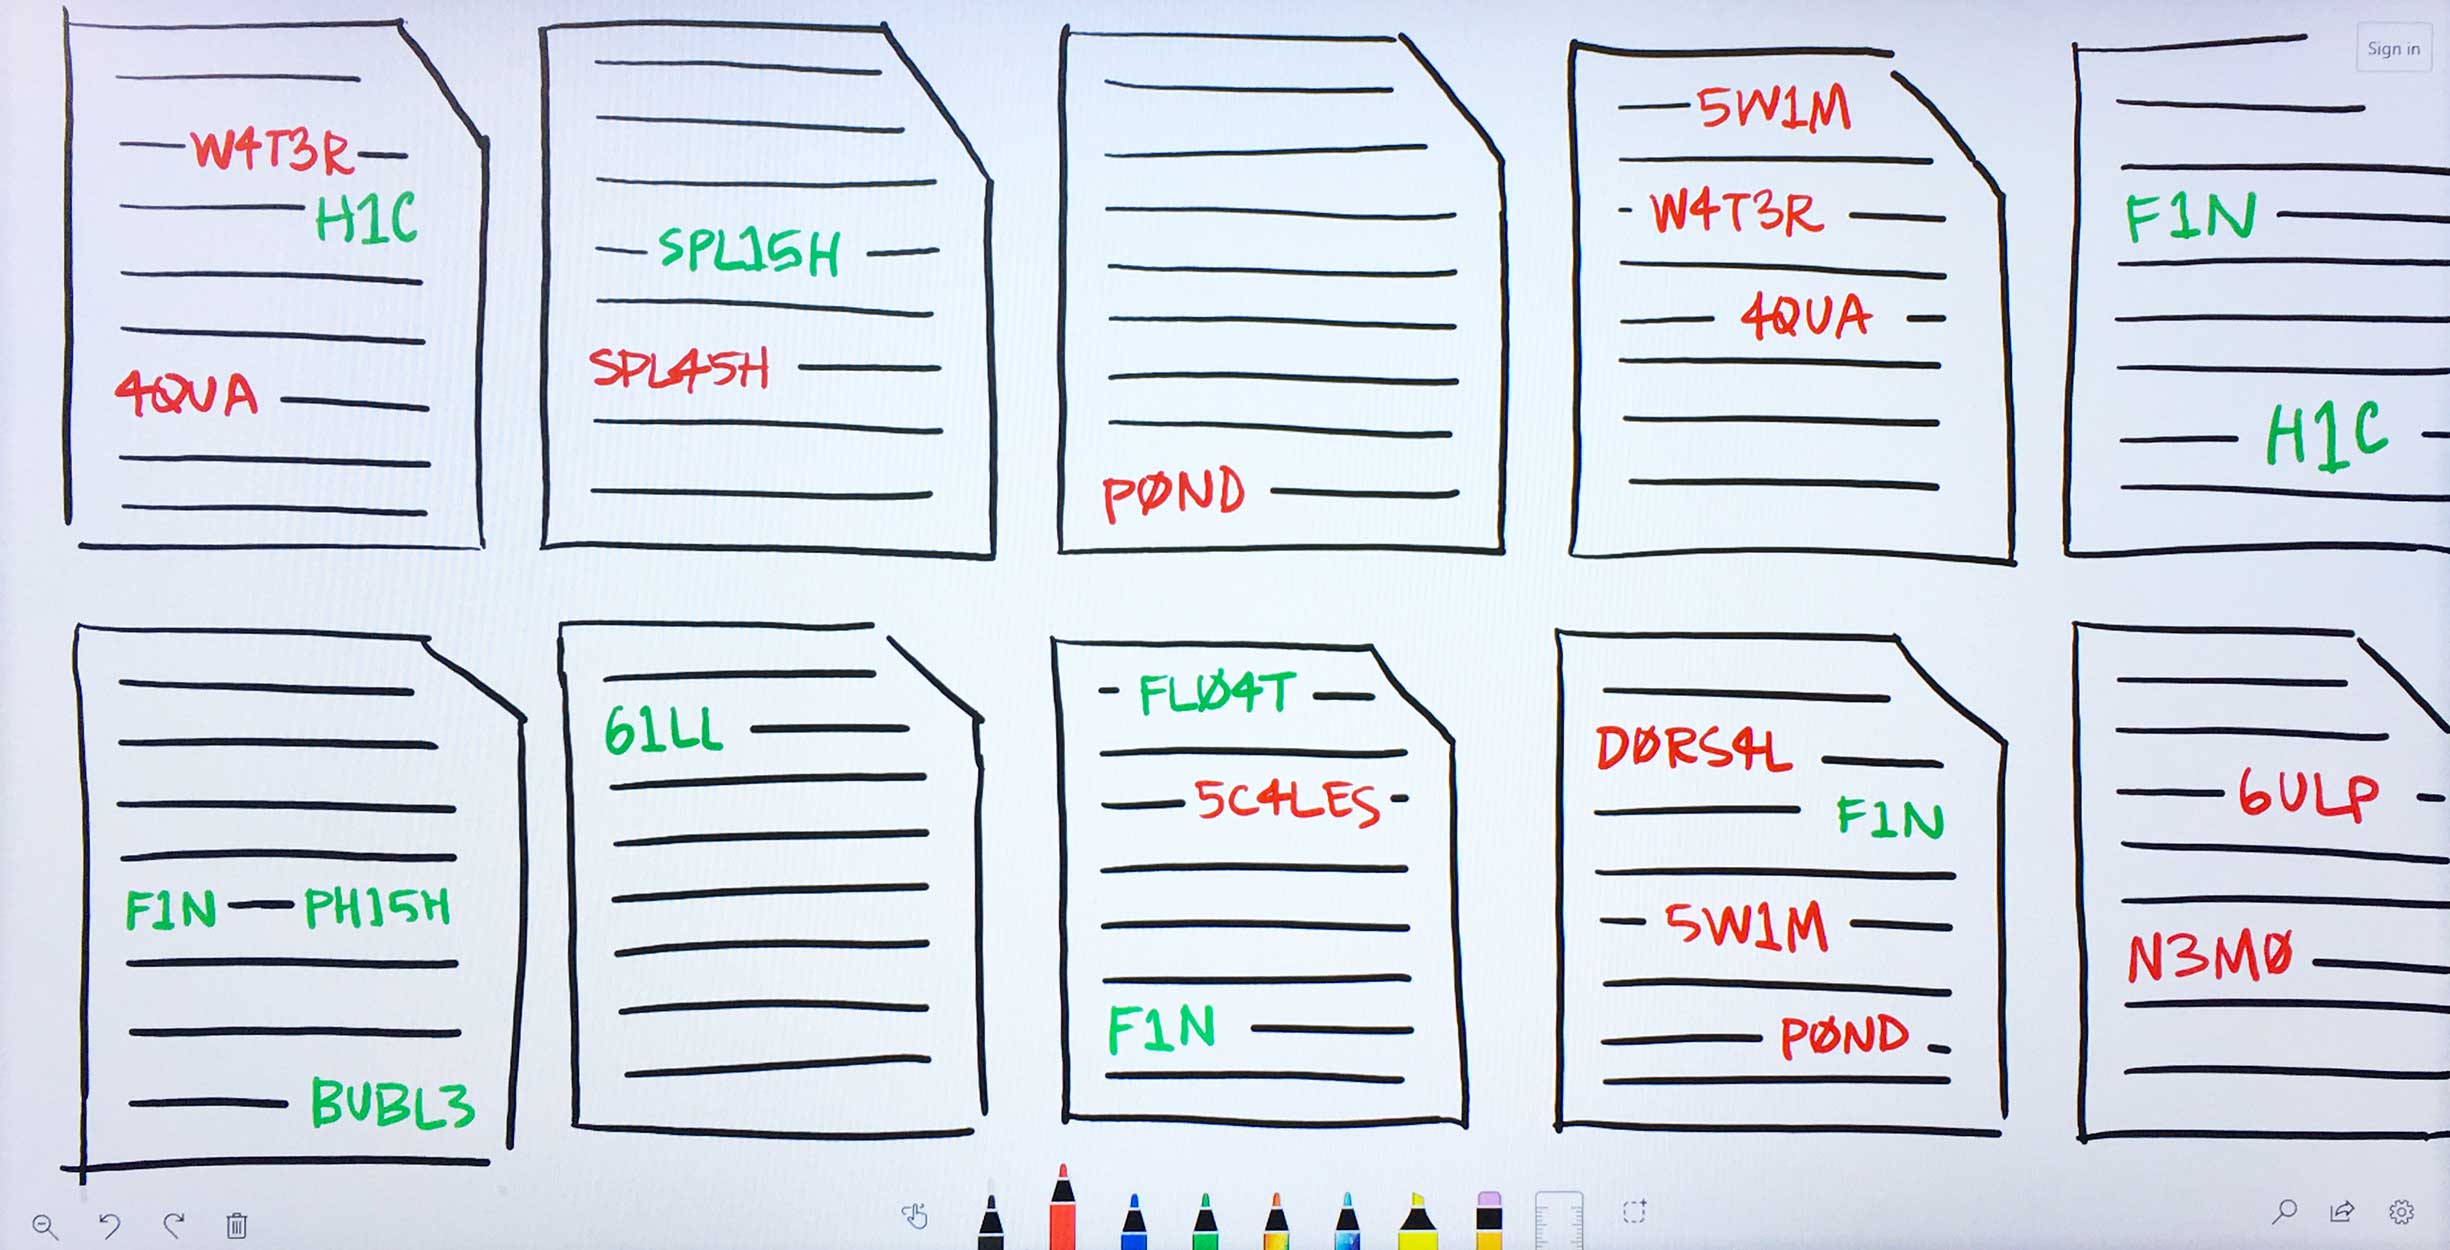 Sign in
W4T3R
H1C
4QUA
SPL15H
SPL45H
PØND
5W1M
W4T3R
4QUA
F1N
H1C
F1N PH15H
BUBL3
61LL
FLØ4T
5C4LES
F1N
DØRS4L
F1N
5W1M
PØND
6ULP
N3MØ